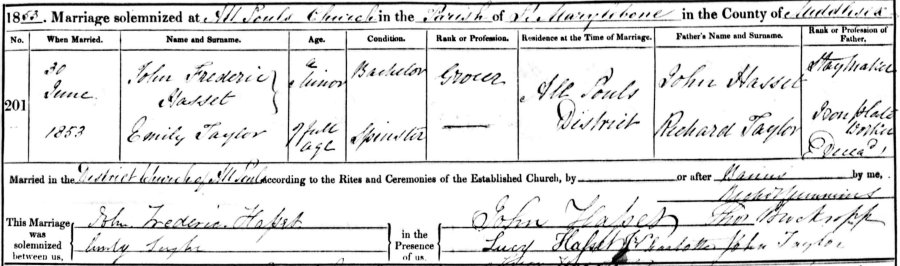 1853. Marriage solemnized at All Souls Church in the Parish of St Marylebone in the County of Middlesex
No. When Married. Name and Surname. Age. Condition. Rank or Profession. Residence at the Time of Marriage. Father's Name and Surname. Rank or Profession of Father.
201 30 June 1853 John Frederic Hasset a Minor Bachelor Grocer All Souls District John Hasset Staymaker
Emily Taylor of full age Spinster — Richard Taylor Iron Plate Worker
Married in the District Church of All Souls according to the Rites and Ceremonies of the Established Church, by or after Banns by me,
This Marriage was solemnized between us,
John Frederic Hasset
Emily
in the Presence of us.
John Hasset
Lucy Hasset Charlotte John Taylor